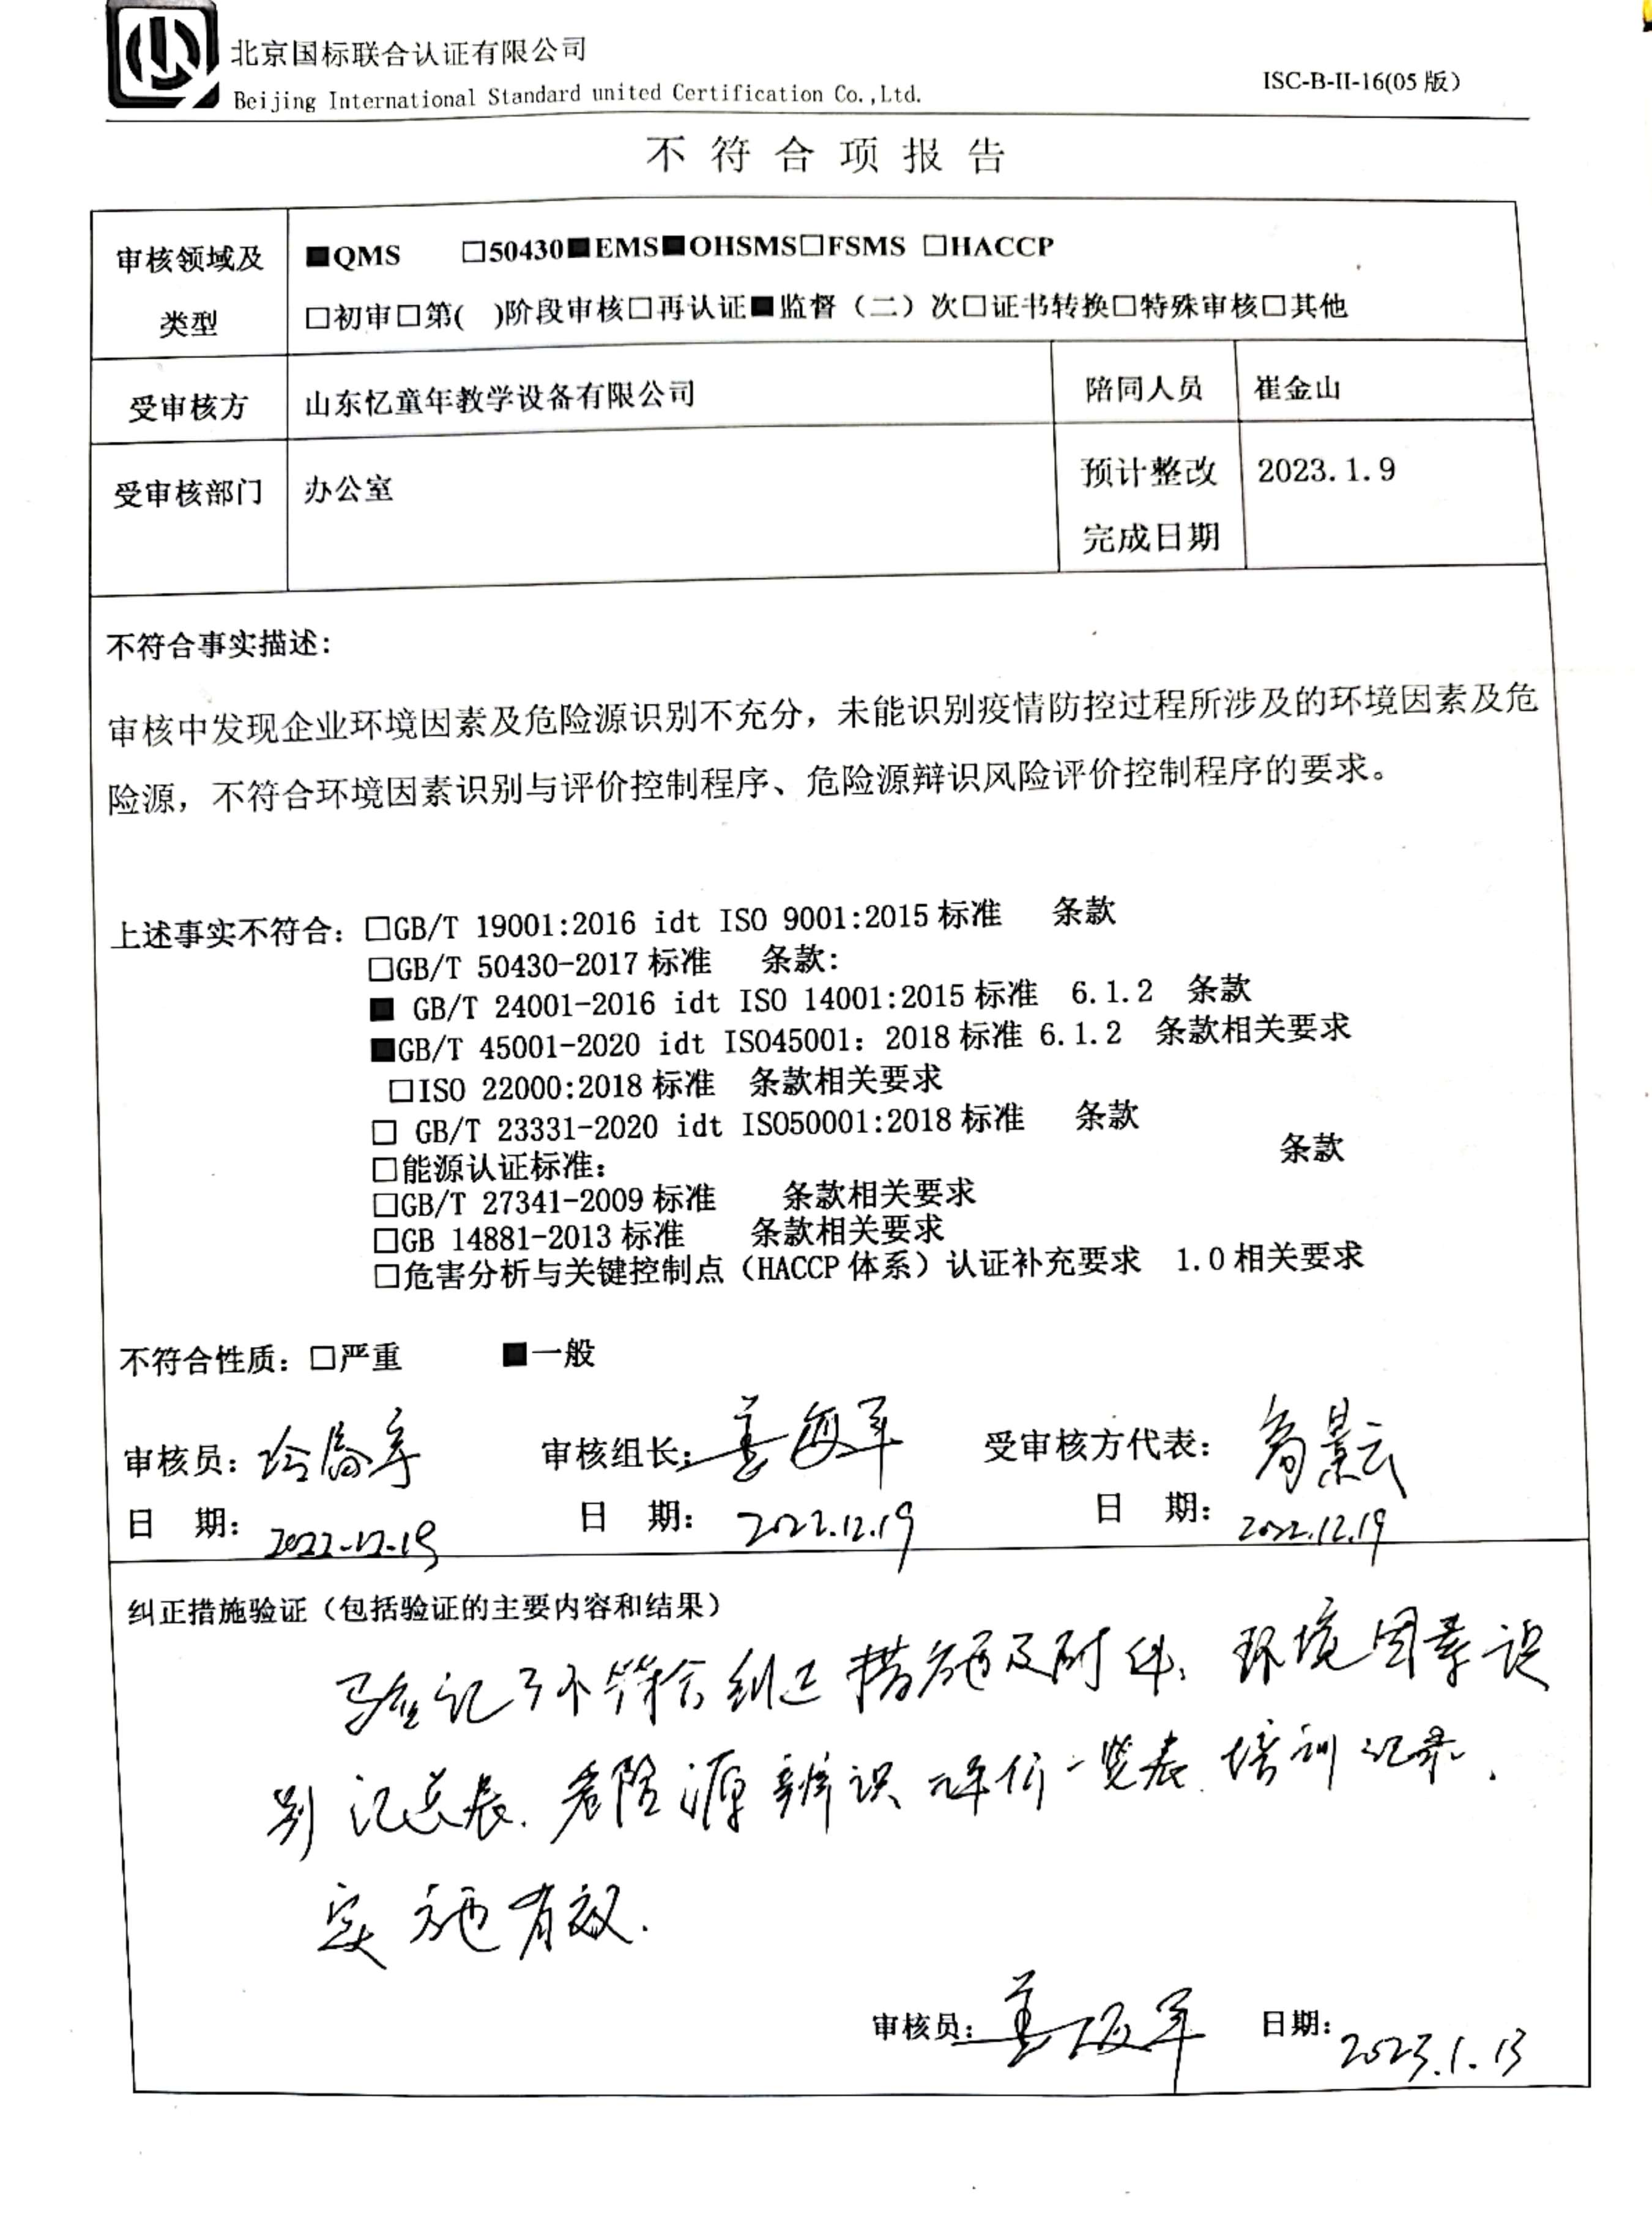 北京国标联合认证有限公司
Beijing International Standard united Certification Co.,Ltd.
ISC-B-II-16(05版)
不符合项报告
审核领域及类型
■QMS □50430■EMS■OHSMS□FSMS □HACCP
□初审□第( )阶段审核□再认证■监督（二）次□证书转换□特殊审核□其他
受审核方 山东忆童年教学设备有限公司 陪同人员 崔金山
受审核部门 办公室 预计整改完成日期 2023.1.9
不符合事实描述：
审核中发现企业环境因素及危险源识别不充分，未能识别疫情防控过程所涉及的环境因素及危
险源，不符合环境因素识别与评价控制程序、危险源辩识风险评价控制程序的要求。
上述事实不符合：□GB/T 19001:2016 idt ISO 9001:2015标准 条款
□GB/T 50430-2017标准 条款：
■ GB/T 24001-2016 idt ISO 14001:2015标准 6.1.2 条款
■GB/T 45001-2020 idt ISO45001：2018标准 6.1.2 条款相关要求
□ISO 22000:2018标准 条款相关要求
□ GB/T 23331-2020 idt ISO50001:2018标准 条款
□能源认证标准： 条款
□GB/T 27341-2009标准 条款相关要求
□GB 14881-2013标准 条款相关要求
□危害分析与关键控制点（HACCP体系）认证补充要求 1.0相关要求
不符合性质：□严重 ■一般
审核员： 审核组长：姜海军 受审核方代表： 景云
日 期：2022.12.19 日 期：2022.12.19 日 期：2022.12.19
纠正措施验证（包括验证的主要内容和结果）
验证了不符合纠正措施及附件、环境因素识
别汇总表、危险源辨识评价一览表、培训记录、
实施有效.
审核员：姜海军 日期：2023.1.13